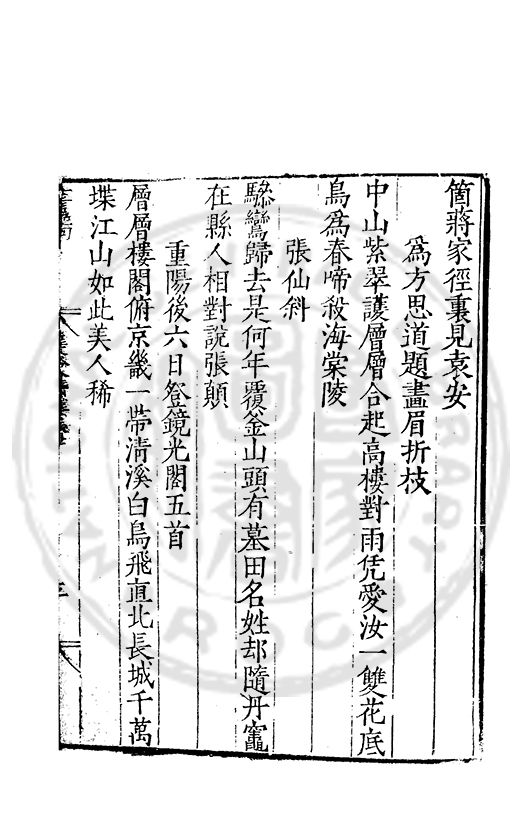 箇蔣家徑裏見袁安
爲方思道題畵眉折枝
中山紫翠護層層合起高樓對雨凭愛汝一雙花底
鳥爲春啼殺海棠陵
張仙斜
驂鸞歸去是何年覆釜山頭有墓田名姓却隨丹竈
在縣人相對說張顛
重陽後六日登鏡光閣五首
層層樓閣俯京畿一帶清溪白鳥飛直北長城千萬
堞江山如此美人稀